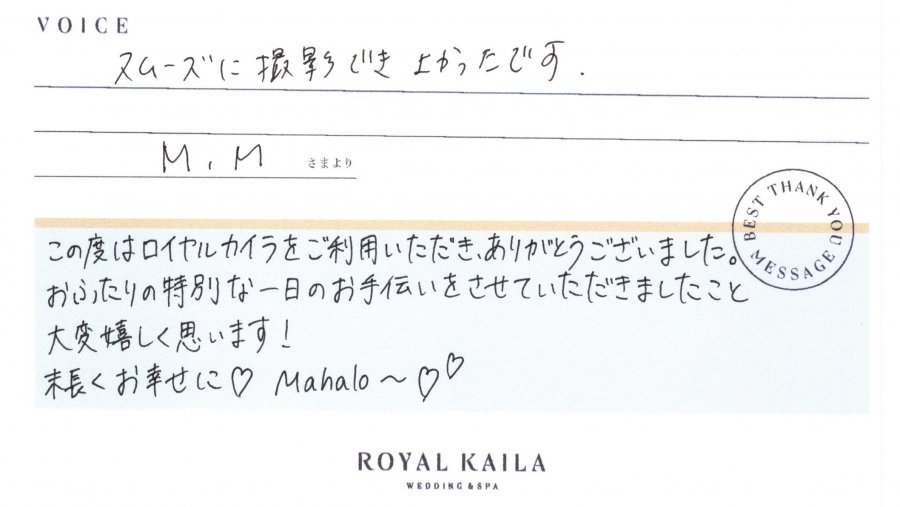 VOICE
スムーズに撮影でき よかったです.
M, M さまより
BEST THANK YOU MESSAGE
この度はロイヤルカイラをご利用いただき、ありがとうございました。
おふたりの特別な一日のお手伝いをさせていただきましたこと
大変嬉しく思います!
末長くお幸せに♡ Mahalo〜♡♡
ROYAL KAILA
WEDDING & SPA